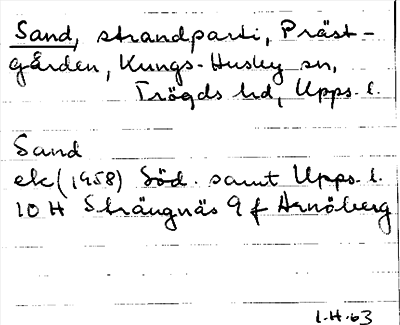 Sand, strandparti, Präst-
gården, Kungs-Husby sn,
Trögds hd, Upps. l.
Sand
ek (1958) Söd. samt Upps. l.
10 H Strängnäs 9 f Arnöberg
I.H.63